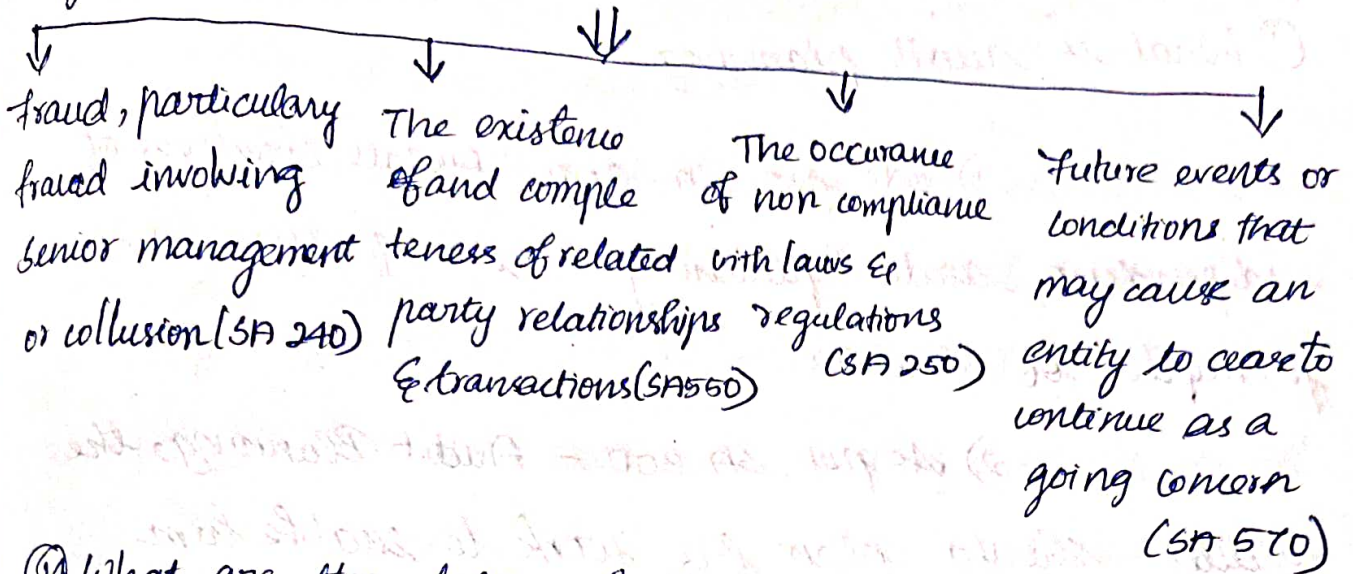 fraud, particulary
fraud involving
senior management
or collusion (SA 240)
The existence
of and comple
teness of related
party relationships
& transactions (SA550)
The occurance
of non compliance
with laws &
regulations
(SA 250)
Future events or
conditions that
may cause an
entity to cease to
continue as a
going concern
(SA 570)
What are the